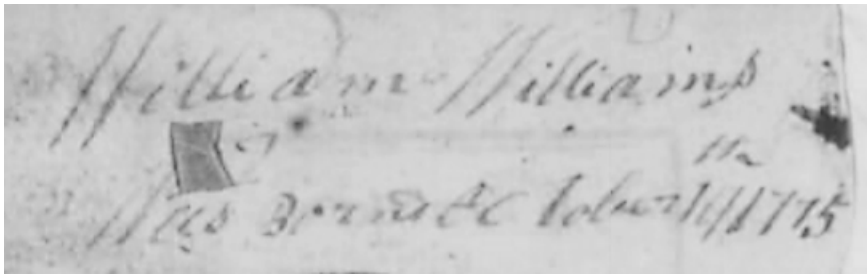 William Williams
Was Born October 1775